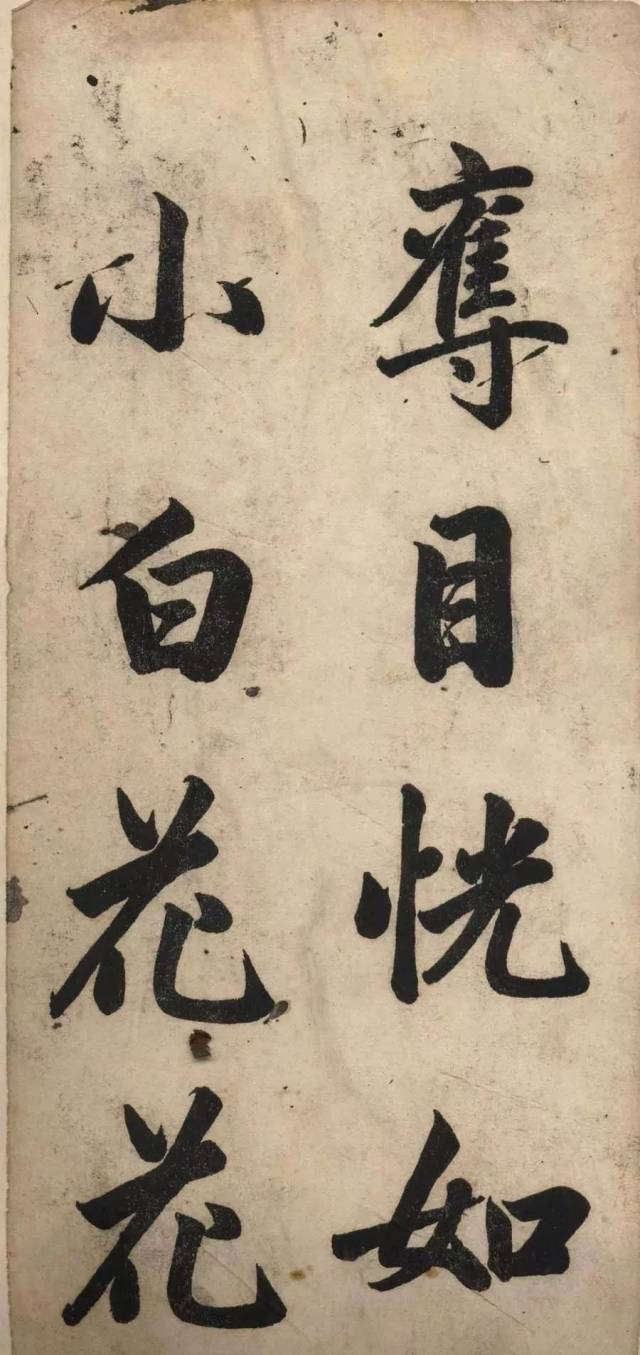 奪目恍如
小白花花